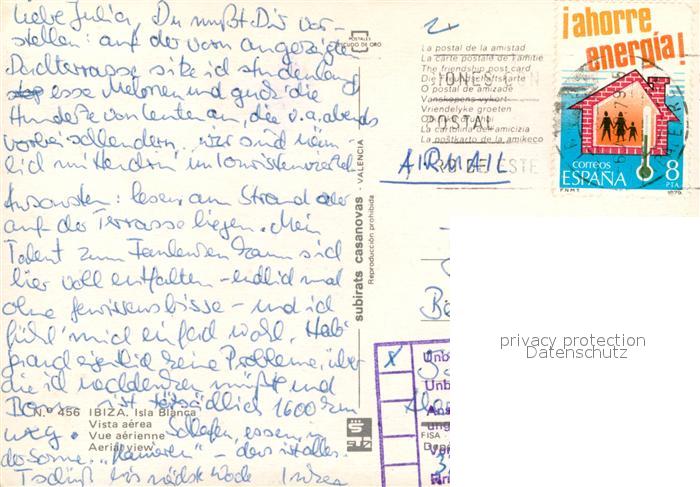 Liebe Julia, Du mußt Dir vor-
stellen: auf der vorn angezeigte
sitz ich stundenlang
esse Melonen und guck die
Hunderte von Leuten an die v.a. abends
vorbei schlendern, wir sind näm-
lich mittendrin im Touristenviertel.
Ansonsten: lesen am Strand oder
auf der Terrasse liegen. Mein
Talent zum Faulenzen kann sich
hier voll entfalten – endlich mal
ohne Gewissensbisse – und ich
fühl' mich einfach wohl. Hab'
grad eigentlich keine Probleme, über
die ich nachdenken müßte und
Bonn ist tatsächlich 1600 km
weg. Schlafen, essen, in
der Sonne – das ist alles
Tschüß bis nächste Woche
Nº 456 IBIZA. Isla Blanca
Vista aérea
Vue aérienne
Aerial view
POSTALES
ESCUDO DE ORO
subirats casanovas - VALENCIA
Reproducción prohibida
La postal de la amistad
La carte postale de l'amitie
The friendship post card
Die Freundschaftskarte
O postal de amizade
Vanskapens vykort
Vriendelijke groeten
La cartolina dell'amicizia
La poŝtkarto de la amikeco
POSTAL
AIRMAIL
¡ahorre
energía!
correos
ESPAÑA
8
PTA
F.N.M.T.
1979
FISA
Unb
Unb
privacy protection
Datenschutz